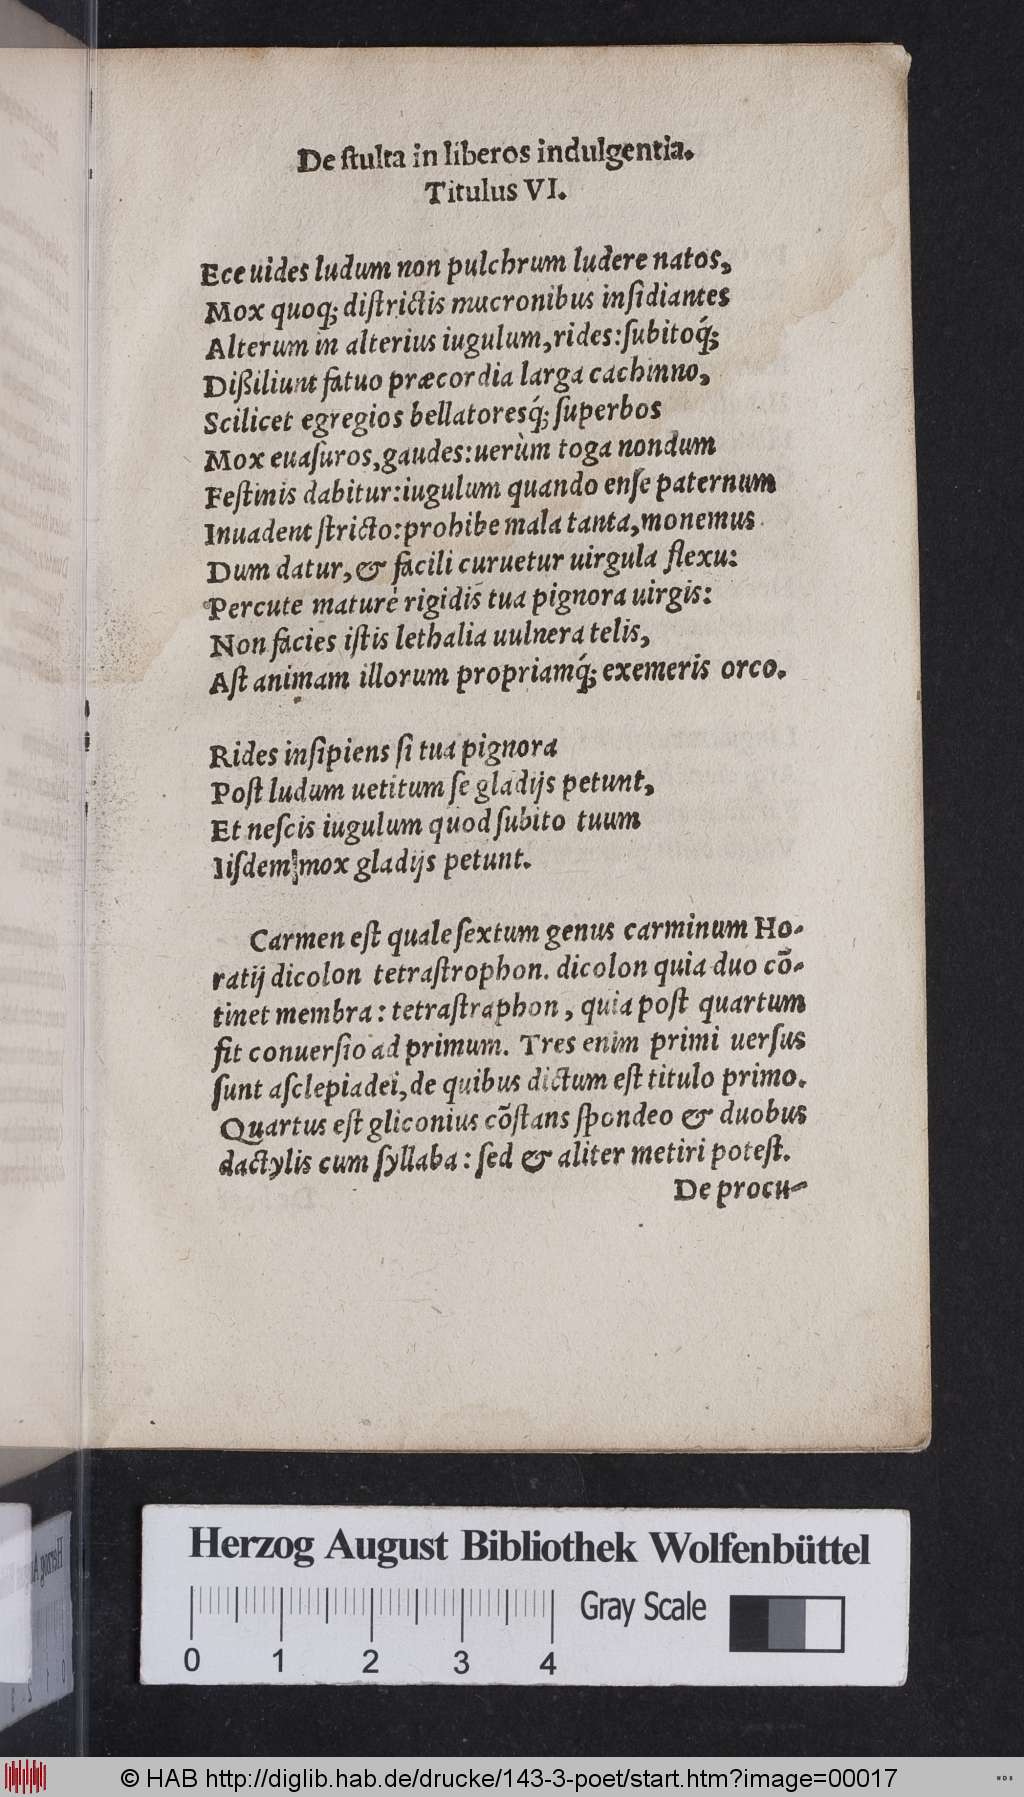 De ſtulta in liberos indulgentia.
Titulus VI.
Ece uides ludum non pulchrum ludere natos,
Mox quoq; diſtrictis mucronibus inſidiantes
Alterum in alterius iugulum, rides: ſubitoq́;
Dißiliunt fatuo præcordia larga cachinno,
Scilicet egregios bellatoresq́; ſuperbos
Mox euaſuros, gaudes: uerùm toga nondum
Feſtinis dabitur: iugulum quando enſe paternum
Inuadent ſtricto: prohibe mala tanta, monemus
Dum datur, & facili curuetur uirgula flexu:
Percute maturè rigidis tua pignora uirgis:
Non facies iſtis lethalia uulnera telis,
Aſt animam illorum propriamq́; exemeris orco.
Rides inſipiens ſi tua pignora
Poſt ludum uetitum ſe gladijs petunt,
Et neſcis iugulum quod ſubito tuum
Iiſdem mox gladijs petunt.
Carmen eſt quale ſextum genus carminum Ho-
ratij dicolon tetraſtrophon. dicolon quia duo cõ-
tinet membra: tetraſtraphon, quia poſt quartum
fit conuerſio ad primum. Tres enim primi uerſus
ſunt aſclepiadei, de quibus dictum eſt titulo primo.
Quartus eſt gliconius cõſtans ſpondeo & duobus
dactylis cum ſyllaba: ſed & aliter metiri poteſt.
De procu-
Herzog August Bibliothek Wolfenbüttel
Gray Scale
0 1 2 3 4
© HAB http://diglib.hab.de/drucke/143-3-poet/start.htm?image=00017